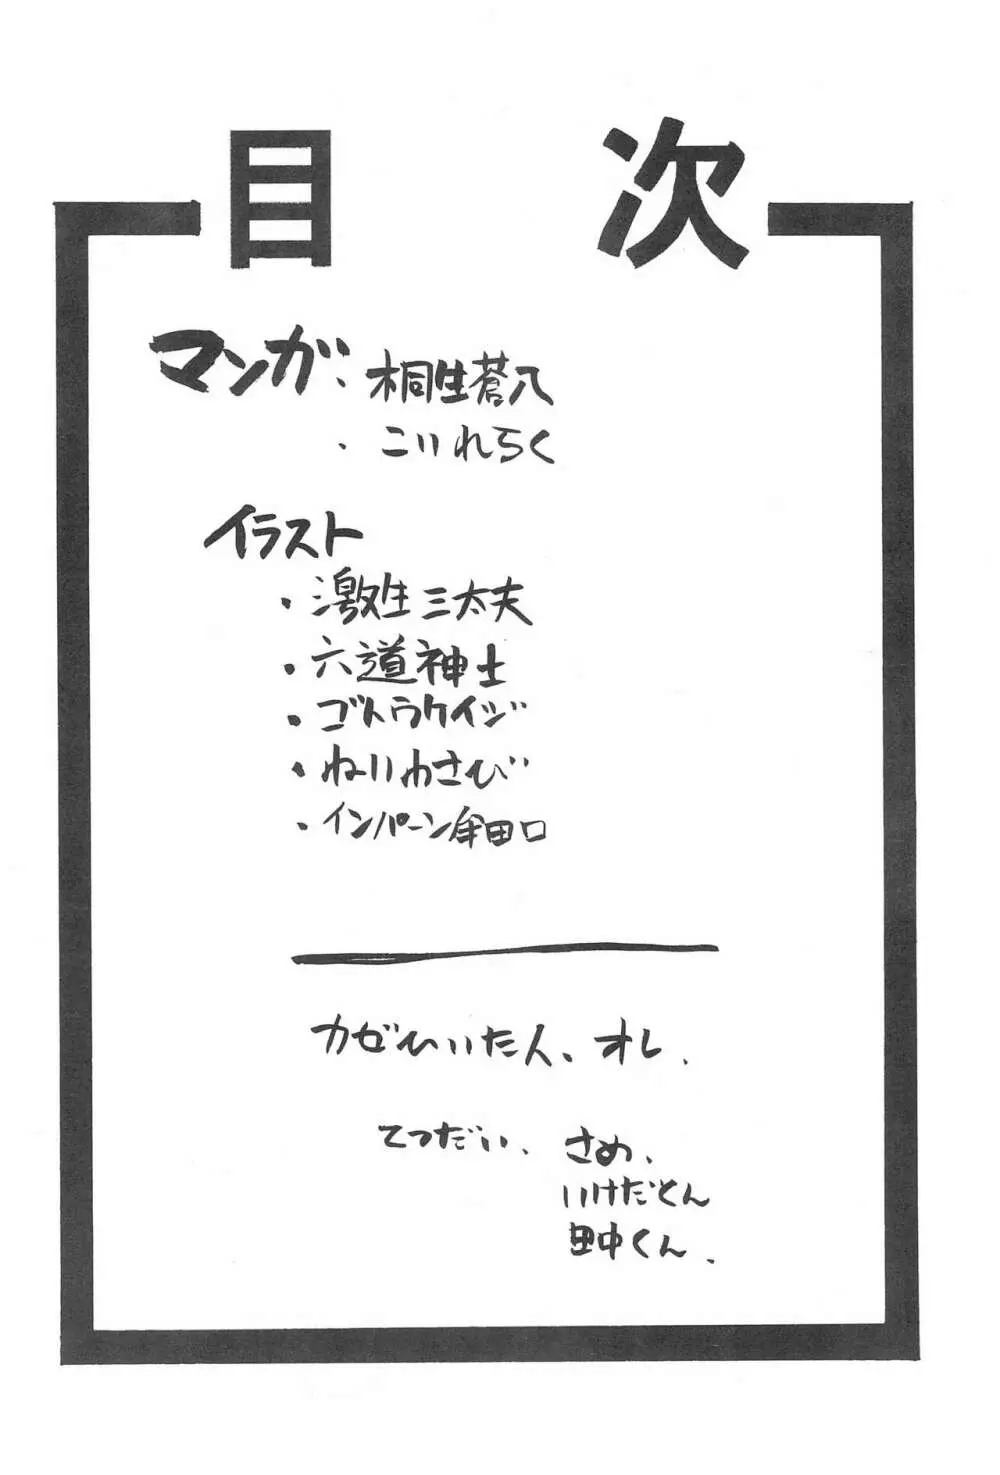 目次
マンガ・桐生蒼八
・こいれらく
イラスト
・激生三太夫
・六道神士
・ゴトウケイジ
・ねりわさび
・インパーン牟田口
カゼひいた人、オレ.
てつだい、さめ、
いけだとん
田中くん.